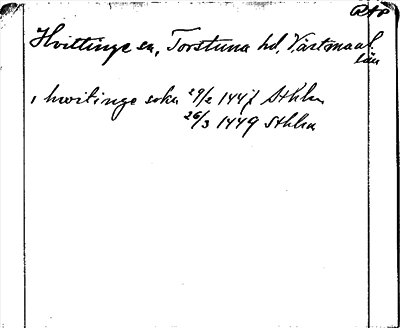 Hvittinge sn, Torstuna hd, Västmanl.
län
, hwitinge sokn 29/2 1447 Sthlm
26/3 1449 Sthlm